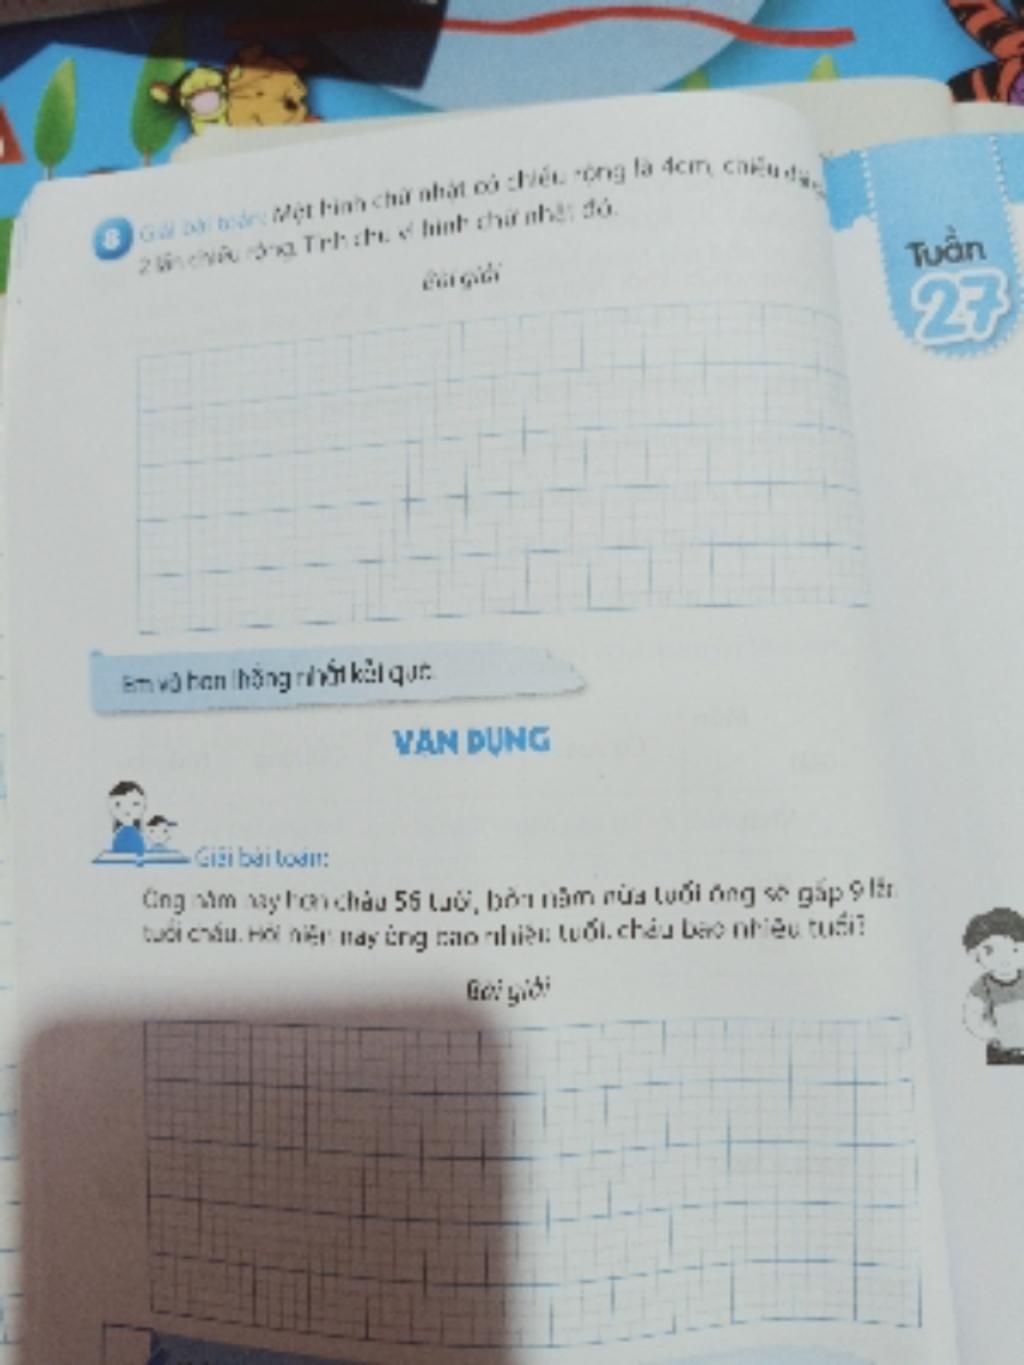 8 Giải bài toán: Một hình chữ nhật có chiều rộng là 4cm, chiều dài
2 lần chiều rộng. Tính chu vi hình chữ nhật đó.
Bài giải
Tuần
27
Em và bạn thống nhất kết quả.
VẬN DỤNG
Giải bài toán:
Ông năm nay hơn cháu 56 tuổi, bốn năm nữa tuổi ông sẽ gấp 9 lần
tuổi cháu. Hỏi hiện nay ông bao nhiêu tuổi, cháu bao nhiêu tuổi?
Bài giải